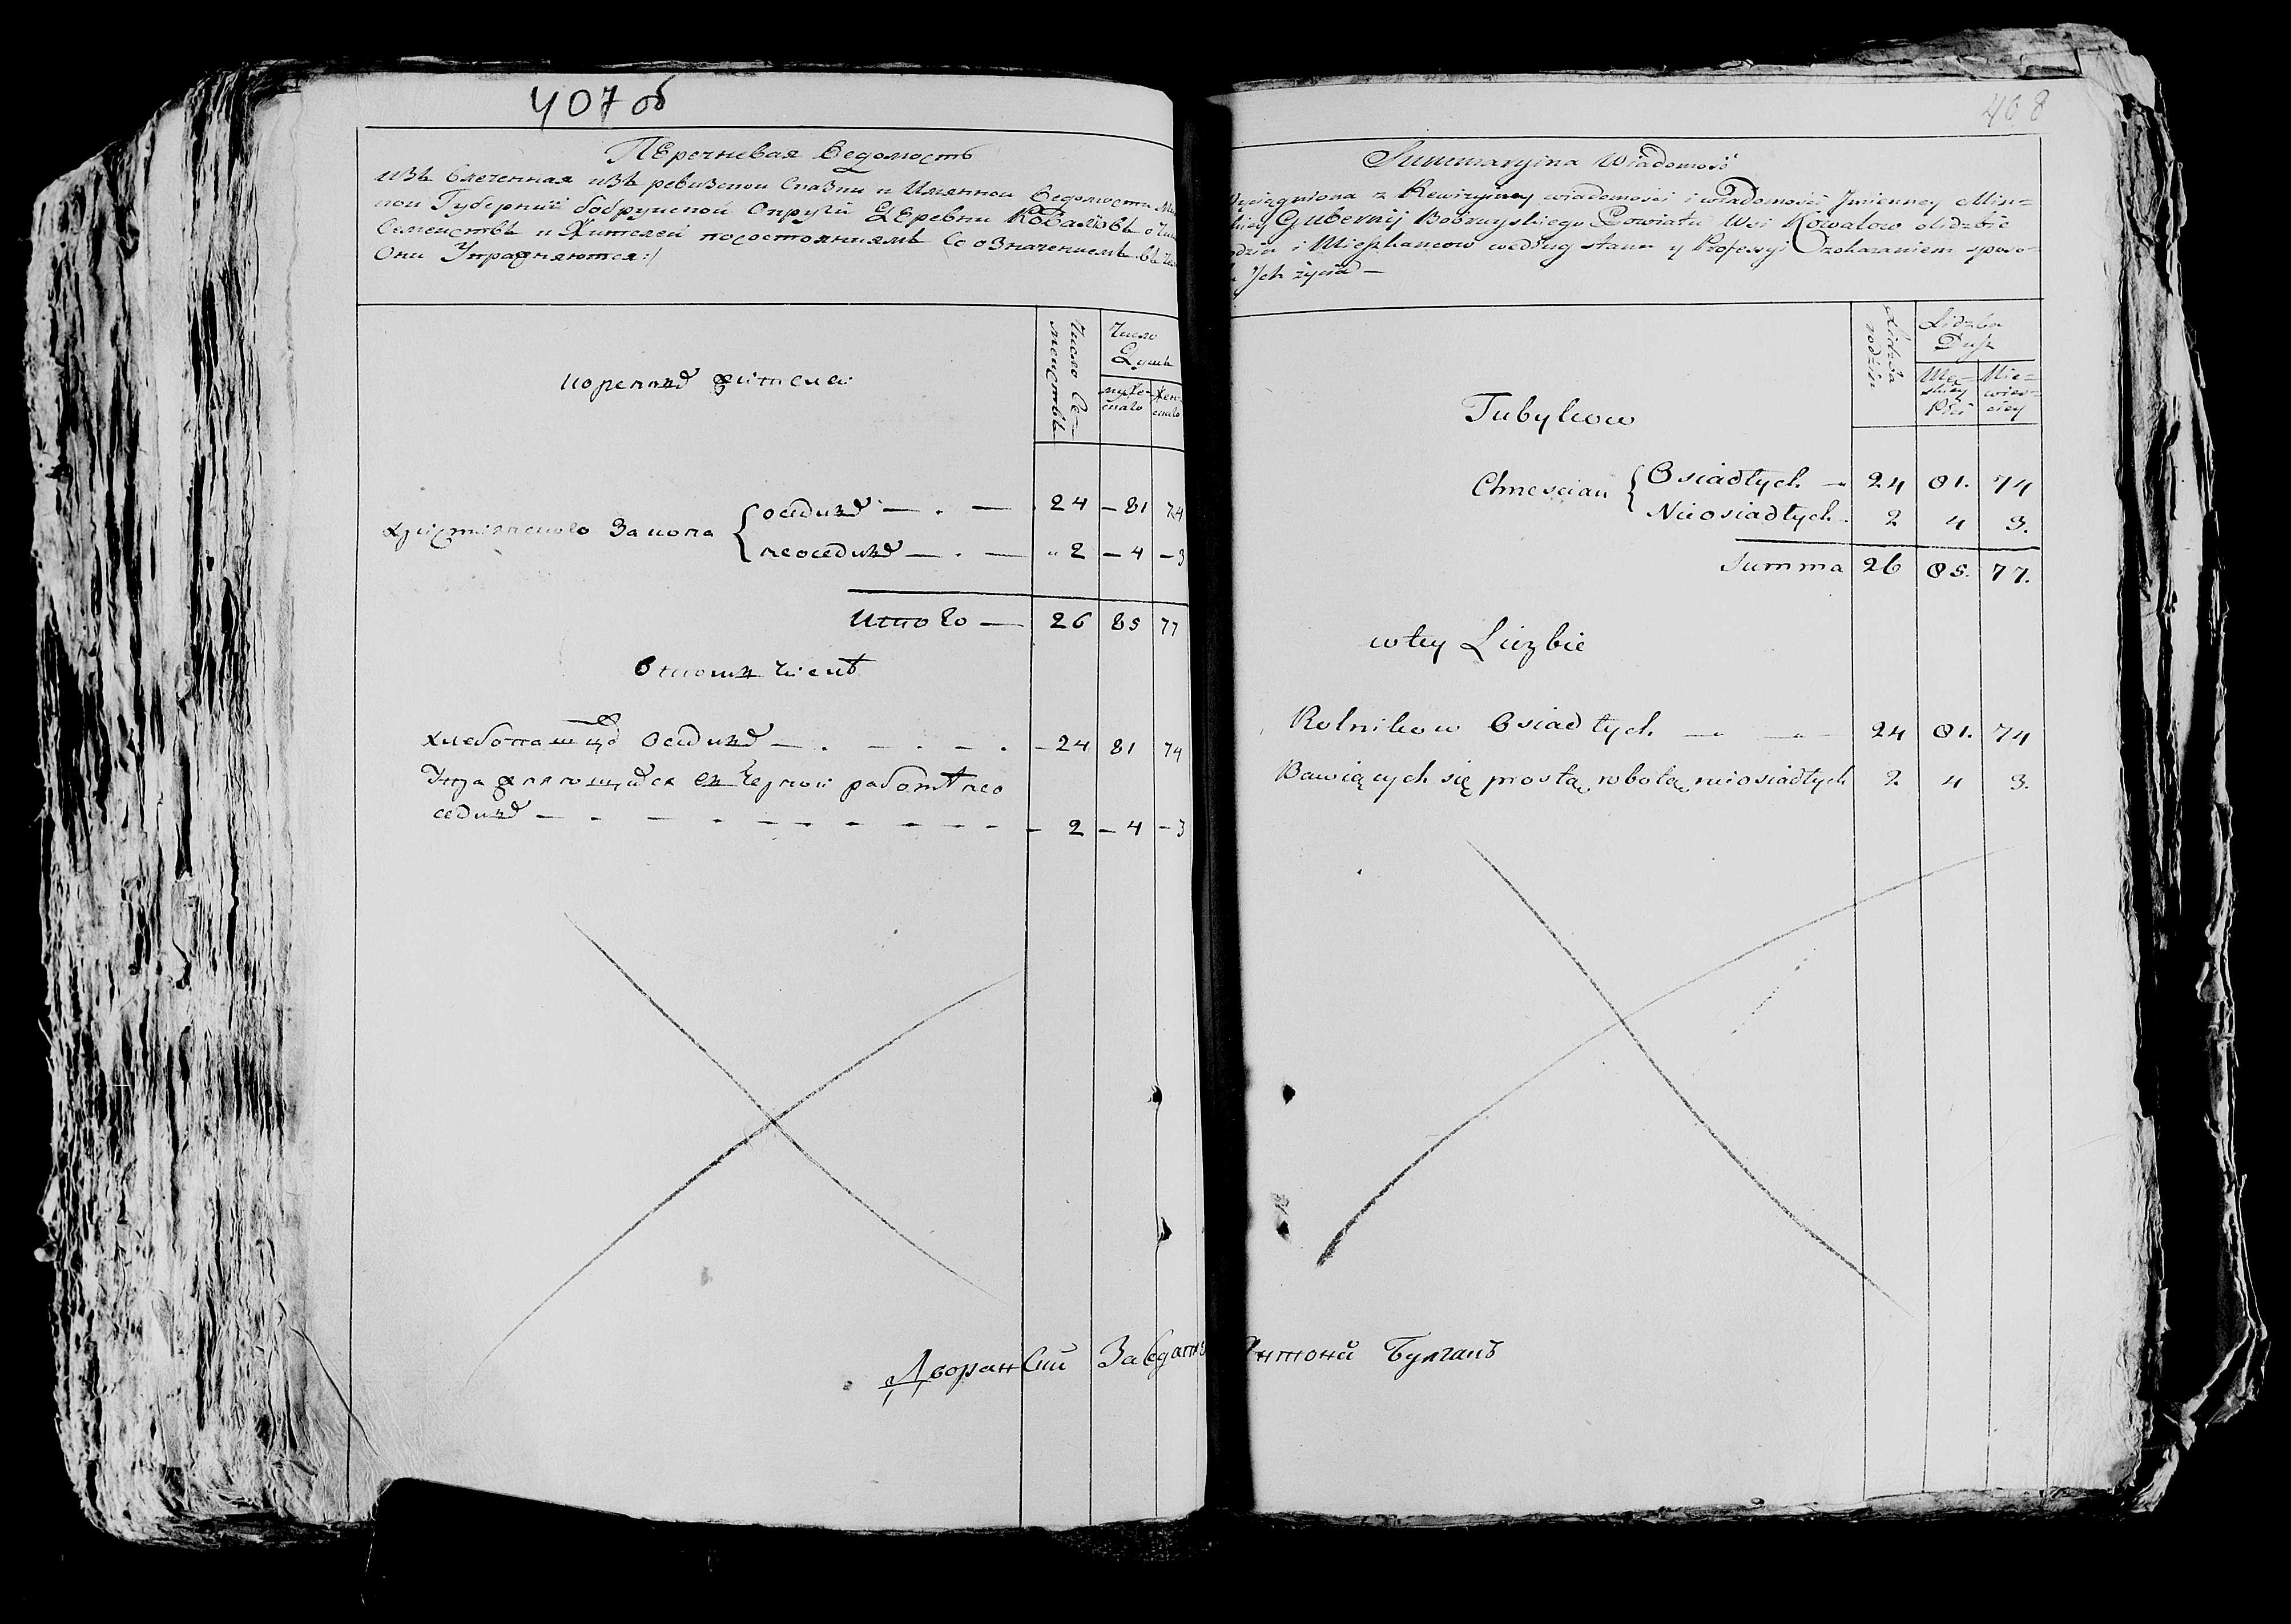 407 об
Перечневая Ведомость
изъ влеченная изъ ревизкой Сказки и Имянной Ведомости
кой Губернии бобруйской Округи Деревни Ковалювъ о
Семействъ и Жителей посостояниямъ со означениемъ
Они Упражняются:/
коренныхъ жителей
Число Се-
мействъ
Число
Душъ
муже-
скаго
жен-
скаго
християнскаго Закона
оседлыхъ — . — 24 — 81 74
неоседлыхъ — . — " 2 — 4 — 3
Итого — 26 85 77
втомъ числѣ
хлебопашцовъ Оседлыхъ — . — . — . — 24 81 74
Упражняющихся въ Черной работѣ нео
седлыхъ — - — - — - — - — 2 — 4 — 3
Дворанский Заседатель Антоний Булгакъ
408
Summaryina Wiadomość
Wyciągniona z Rewizyiney wiadomości i wiadomości Jmienney Min=
skiey Gubernij Bobruyskiego Powiatu Wsi Kowalow olidzbie
rodzin i Mieszkancow według stanu y Professyi Zokazaniem sposo-
bu Jch życia —
Lidzba
rodzin
Lidzba
Dusz
Mę=
skiey
Płci
Nie=
wies=
ciey
Tubylcow
Chrzescian
Osiadłych — 24 81. 74
Nieosiadłych. 2 4 3.
Summa 26 85. 77.
wtey Liczbie
Rolnikow Osiadłych — — 24 81. 74
Bawiących się prostą robotą nieosiadłych 2. 4 3.